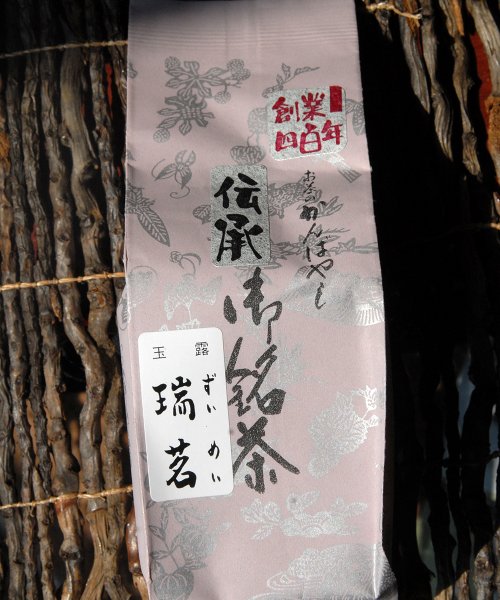 創業
四百年
お茶のかんばやし
伝承
御銘茶
玉露
瑞茗
ずい めい